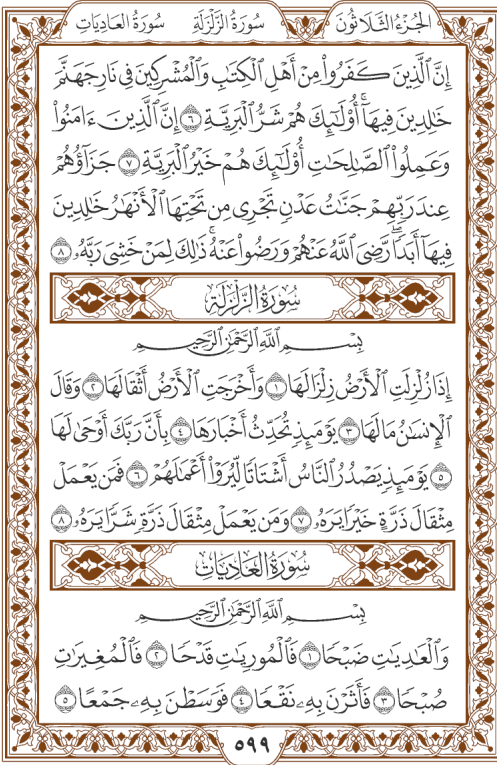 الجُزْءُ الثَّلَاثُونَ سُورَةُ الزَّلْزَلَةِ سُورَةُ العَادِيَاتِ
إِنَّ ٱلَّذِينَ كَفَرُواْ مِنْ أَهْلِ ٱلْكِتَٰبِ وَٱلْمُشْرِكِينَ فِى نَارِ جَهَنَّمَ
خَٰلِدِينَ فِيهَآۚ أُوْلَٰٓئِكَ هُمْ شَرُّ ٱلْبَرِيَّةِ ٦ إِنَّ ٱلَّذِينَ ءَامَنُواْ
وَعَمِلُواْ ٱلصَّٰلِحَٰتِ أُوْلَٰٓئِكَ هُمْ خَيْرُ ٱلْبَرِيَّةِ ٧ جَزَآؤُهُمْ
عِندَ رَبِّهِمْ جَنَّٰتُ عَدْنٍ تَجْرِى مِن تَحْتِهَا ٱلْأَنْهَٰرُ خَٰلِدِينَ
فِيهَآ أَبَدًاۖ رَّضِىَ ٱللَّهُ عَنْهُمْ وَرَضُواْ عَنْهُۚ ذَٰلِكَ لِمَنْ خَشِىَ رَبَّهُۥ ٨
سُورَةُ الزَّلْزَلَةِ
بِسْمِ ٱللَّهِ ٱلرَّحْمَٰنِ ٱلرَّحِيمِ
إِذَا زُلْزِلَتِ ٱلْأَرْضُ زِلْزَالَهَا ١ وَأَخْرَجَتِ ٱلْأَرْضُ أَثْقَالَهَا ٢ وَقَالَ
ٱلْإِنسَٰنُ مَا لَهَا ٣ يَوْمَئِذٍ تُحَدِّثُ أَخْبَارَهَا ٤ بِأَنَّ رَبَّكَ أَوْحَىٰ لَهَا
٥ يَوْمَئِذٍ يَصْدُرُ ٱلنَّاسُ أَشْتَاتًا لِّيُرَوْاْ أَعْمَٰلَهُمْ ٦ فَمَن يَعْمَلْ
مِثْقَالَ ذَرَّةٍ خَيْرًا يَرَهُۥ ٧ وَمَن يَعْمَلْ مِثْقَالَ ذَرَّةٍ شَرًّا يَرَهُۥ ٨
سُورَةُ العَادِيَاتِ
بِسْمِ ٱللَّهِ ٱلرَّحْمَٰنِ ٱلرَّحِيمِ
وَٱلْعَٰدِيَٰتِ ضَبْحًا ١ فَٱلْمُورِيَٰتِ قَدْحًا ٢ فَٱلْمُغِيرَٰتِ
صُبْحًا ٣ فَأَثَرْنَ بِهِۦ نَقْعًا ٤ فَوَسَطْنَ بِهِۦ جَمْعًا ٥
٥٩٩